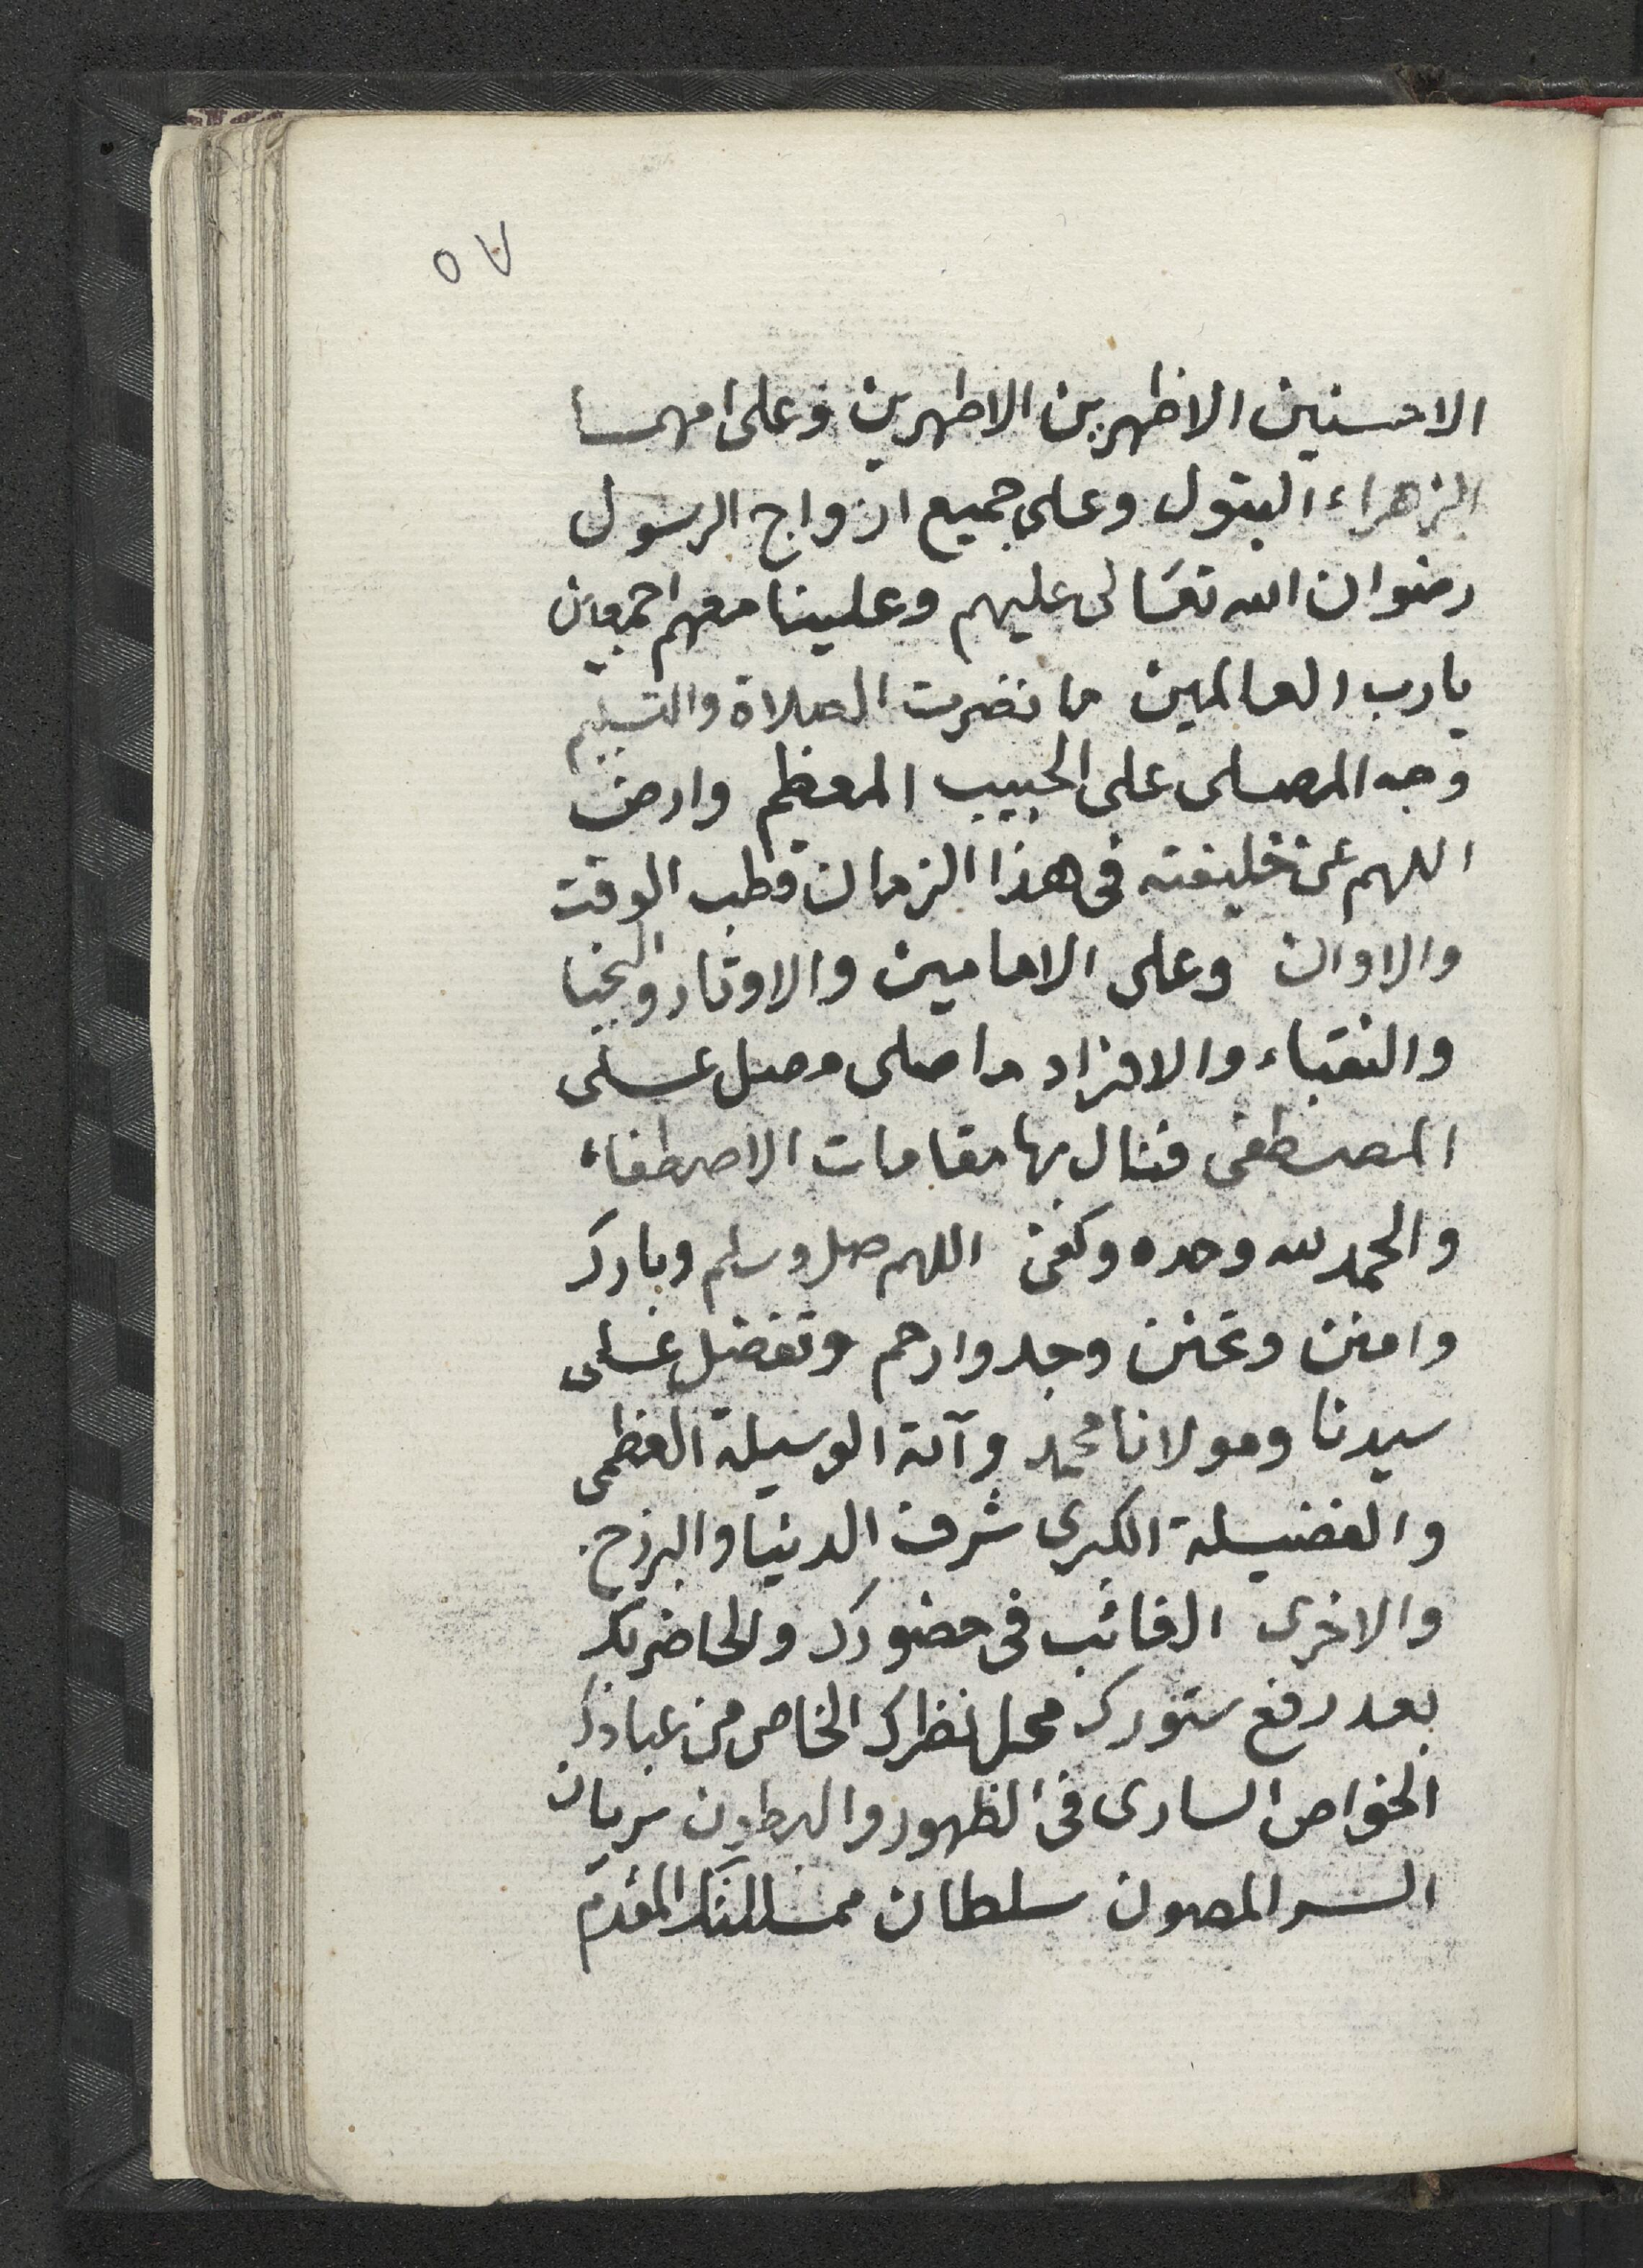 ٥٧
الاحسنين الاظهرين الاطهرين وعلى امهما
الزهراء البتول وعلى جميع ازواج الرسول
رضوان الله تعالى عليهم وعلينا معهم اجمعين
يارب العالمين ما نضرت الصلاة والتسليم
وجه المصلى على الحبيب المعظم وارض
اللهم عن خليفته فى هذا الزمان قطب الوقت
والاوان وعلى الامامين والاوتار والنجبا
والنقباء والافراد ما صلى مصل على
المصطفى فنال بها مقامات الاصطفاء
والحمد لله وحده وكفى اللهم صل وسلم وبارك
وامنن وتحنن وجد وارحم وتفضل على
سيدنا ومولانا محمد وآله الوسيلة العظمى
والفضيلة الكبرى شرف الدنيا والبرزح
والاخرى الغائب فى حضورك والحاضر بك
بعد رفع ستورك محل نظرك الخاص من عبادك
الخواص السارى فى الظهور والبطون سريان
السر المصون سلطان ممللتك المقدم